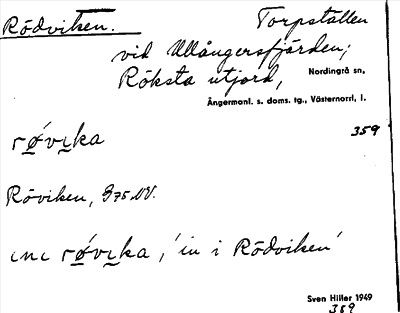 Rödviken. Torpställen
vid Ullångersfjärden;
Röksta utjord, Nordingrå sn,
Ångermanl. s. doms. tg., Västernorrl. l.
359
rǿvıka
Röviken, G75, NV.
ını rǿvıka, 'in i Rödviken'
Sven Hiller 1949
359